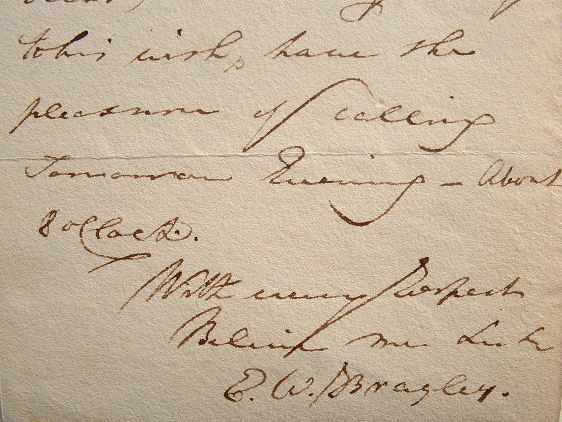 this wish, have the
pleasure of calling
Tomorrow Evening – About
8 oClock.
With every Respect
Believe me
E. W. Brayley.